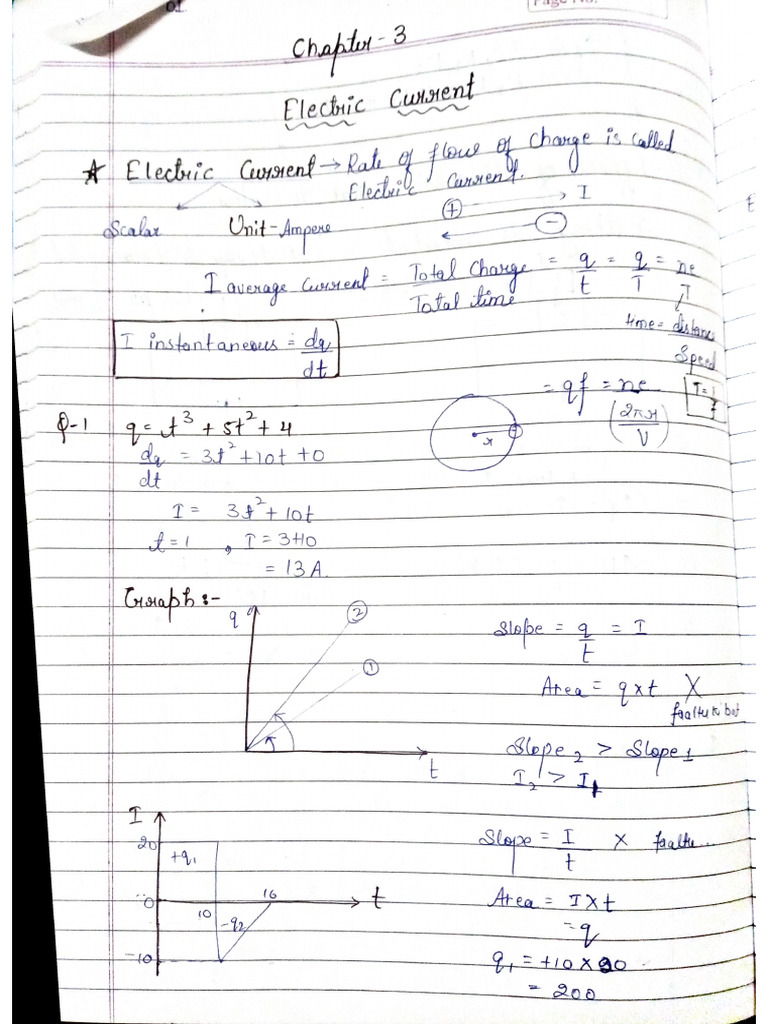 01
Page No.
Chapter - 3
Electric Current
☆ Electric Current → Rate of flow of Charge is called
Electric Current.
Scalar Unit - Ampere
+ → I
← -
I average current = Total Charge / Total time = q/t = q/T = ne/T
time = distance / Speed
I instantaneous = dq/dt
= qf = ne / (2πr/V)
T = 1/f
Q-1 q = t³ + 5t² + 4
r
dq/dt = 3t² + 10t + 0
I = 3t² + 10t
t = 1 , I = 3+10
= 13 A.
Graph :-
q
t
② ①
Slope = q/t = I
Area = q x t X
faaltu ki bat
Slope₂ > Slope₁
I₂ > I₁
I
20
+q₁
0
10
16
t
-q₂
-10
Slope = I/t X faaltu...
Area = I x t
= q
q₁ = +10 x 20
= 200